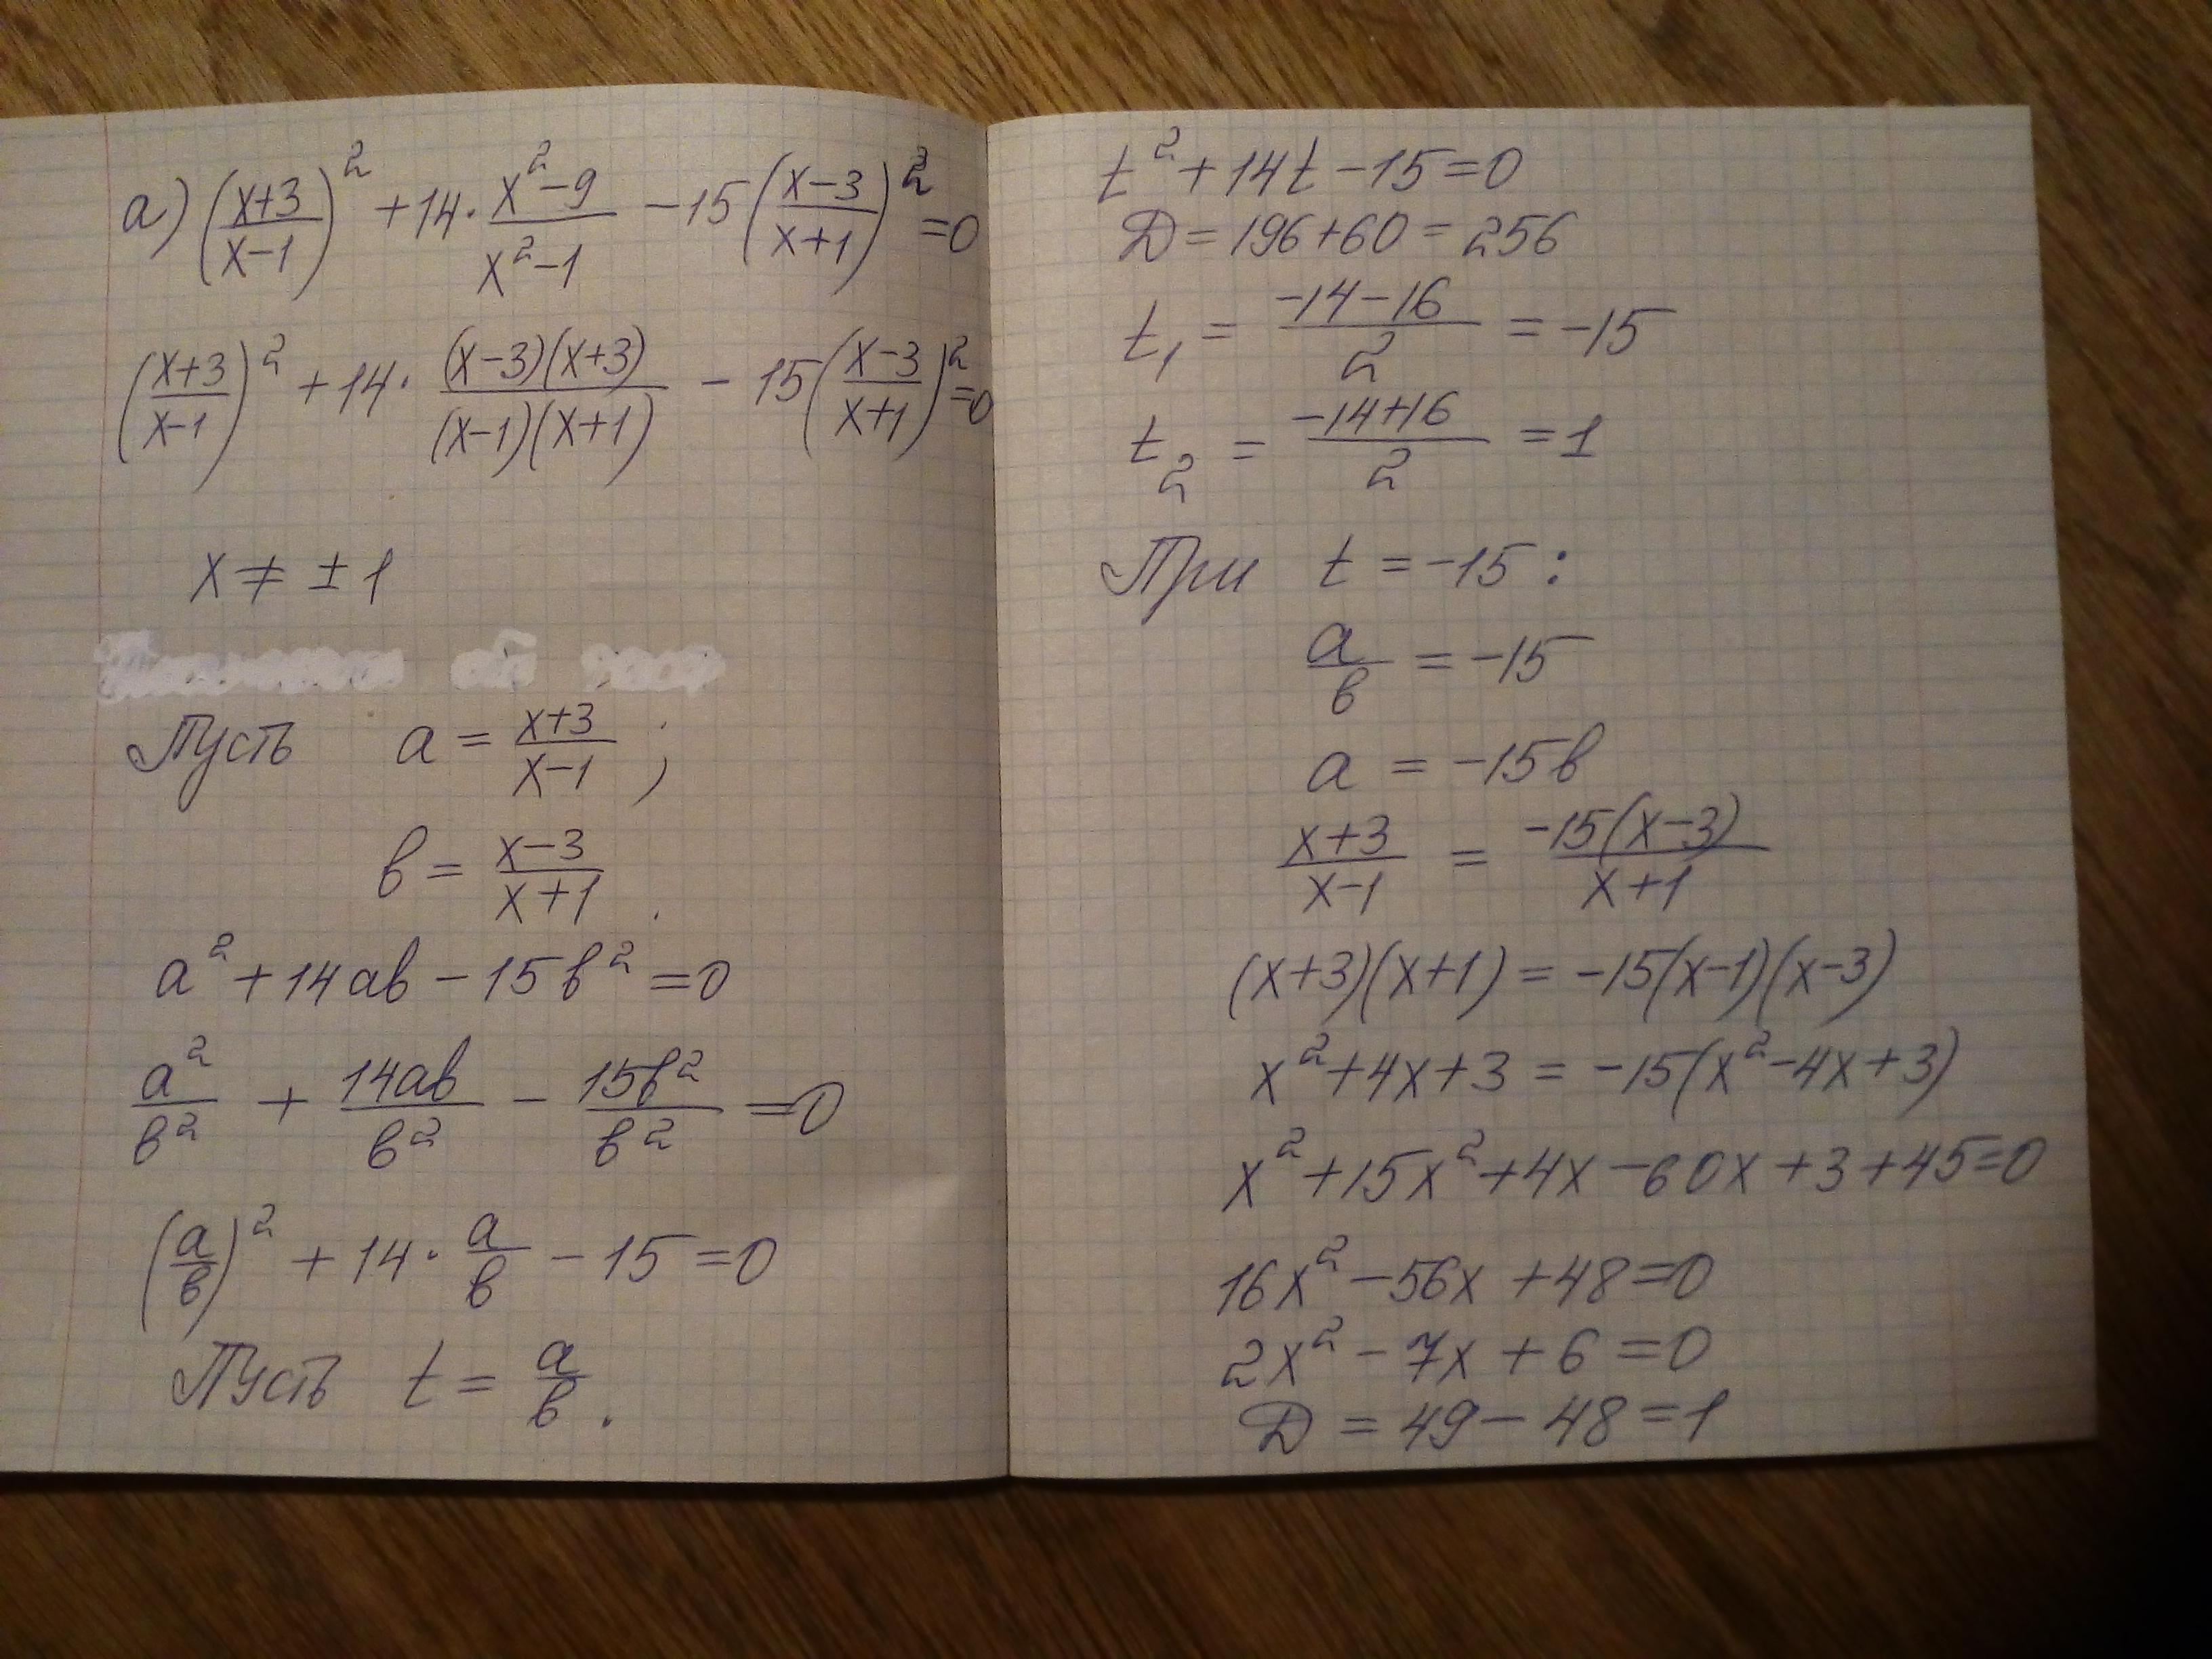 а) ((x+3)/(x-1))² + 14·(x²-9)/(x²-1) - 15((x-3)/(x+1))² = 0
((x+3)/(x-1))² + 14·((x-3)(x+3))/((x-1)(x+1)) - 15((x-3)/(x+1))² = 0
x ≠ ± 1
Пусть a = (x+3)/(x-1) ;
в = (x-3)/(x+1) .
a² + 14aв - 15в² = 0
a²/в² + 14aв/в² - 15в²/в² = 0
(a/в)² + 14·a/в - 15 = 0
Пусть t = a/в .
t² + 14t - 15 = 0
Д = 196 + 60 = 256
t₁ = (-14-16)/2 = -15
t₂ = (-14+16)/2 = 1
При t = -15 :
a/в = -15
a = -15в
(x+3)/(x-1) = -15(x-3)/(x+1)
(x+3)(x+1) = -15(x-1)(x-3)
x² + 4x + 3 = -15(x² - 4x + 3)
x² + 15x² + 4x - 60x + 3 + 45 = 0
16x² - 56x + 48 = 0
2x² - 7x + 6 = 0
Д = 49 - 48 = 1